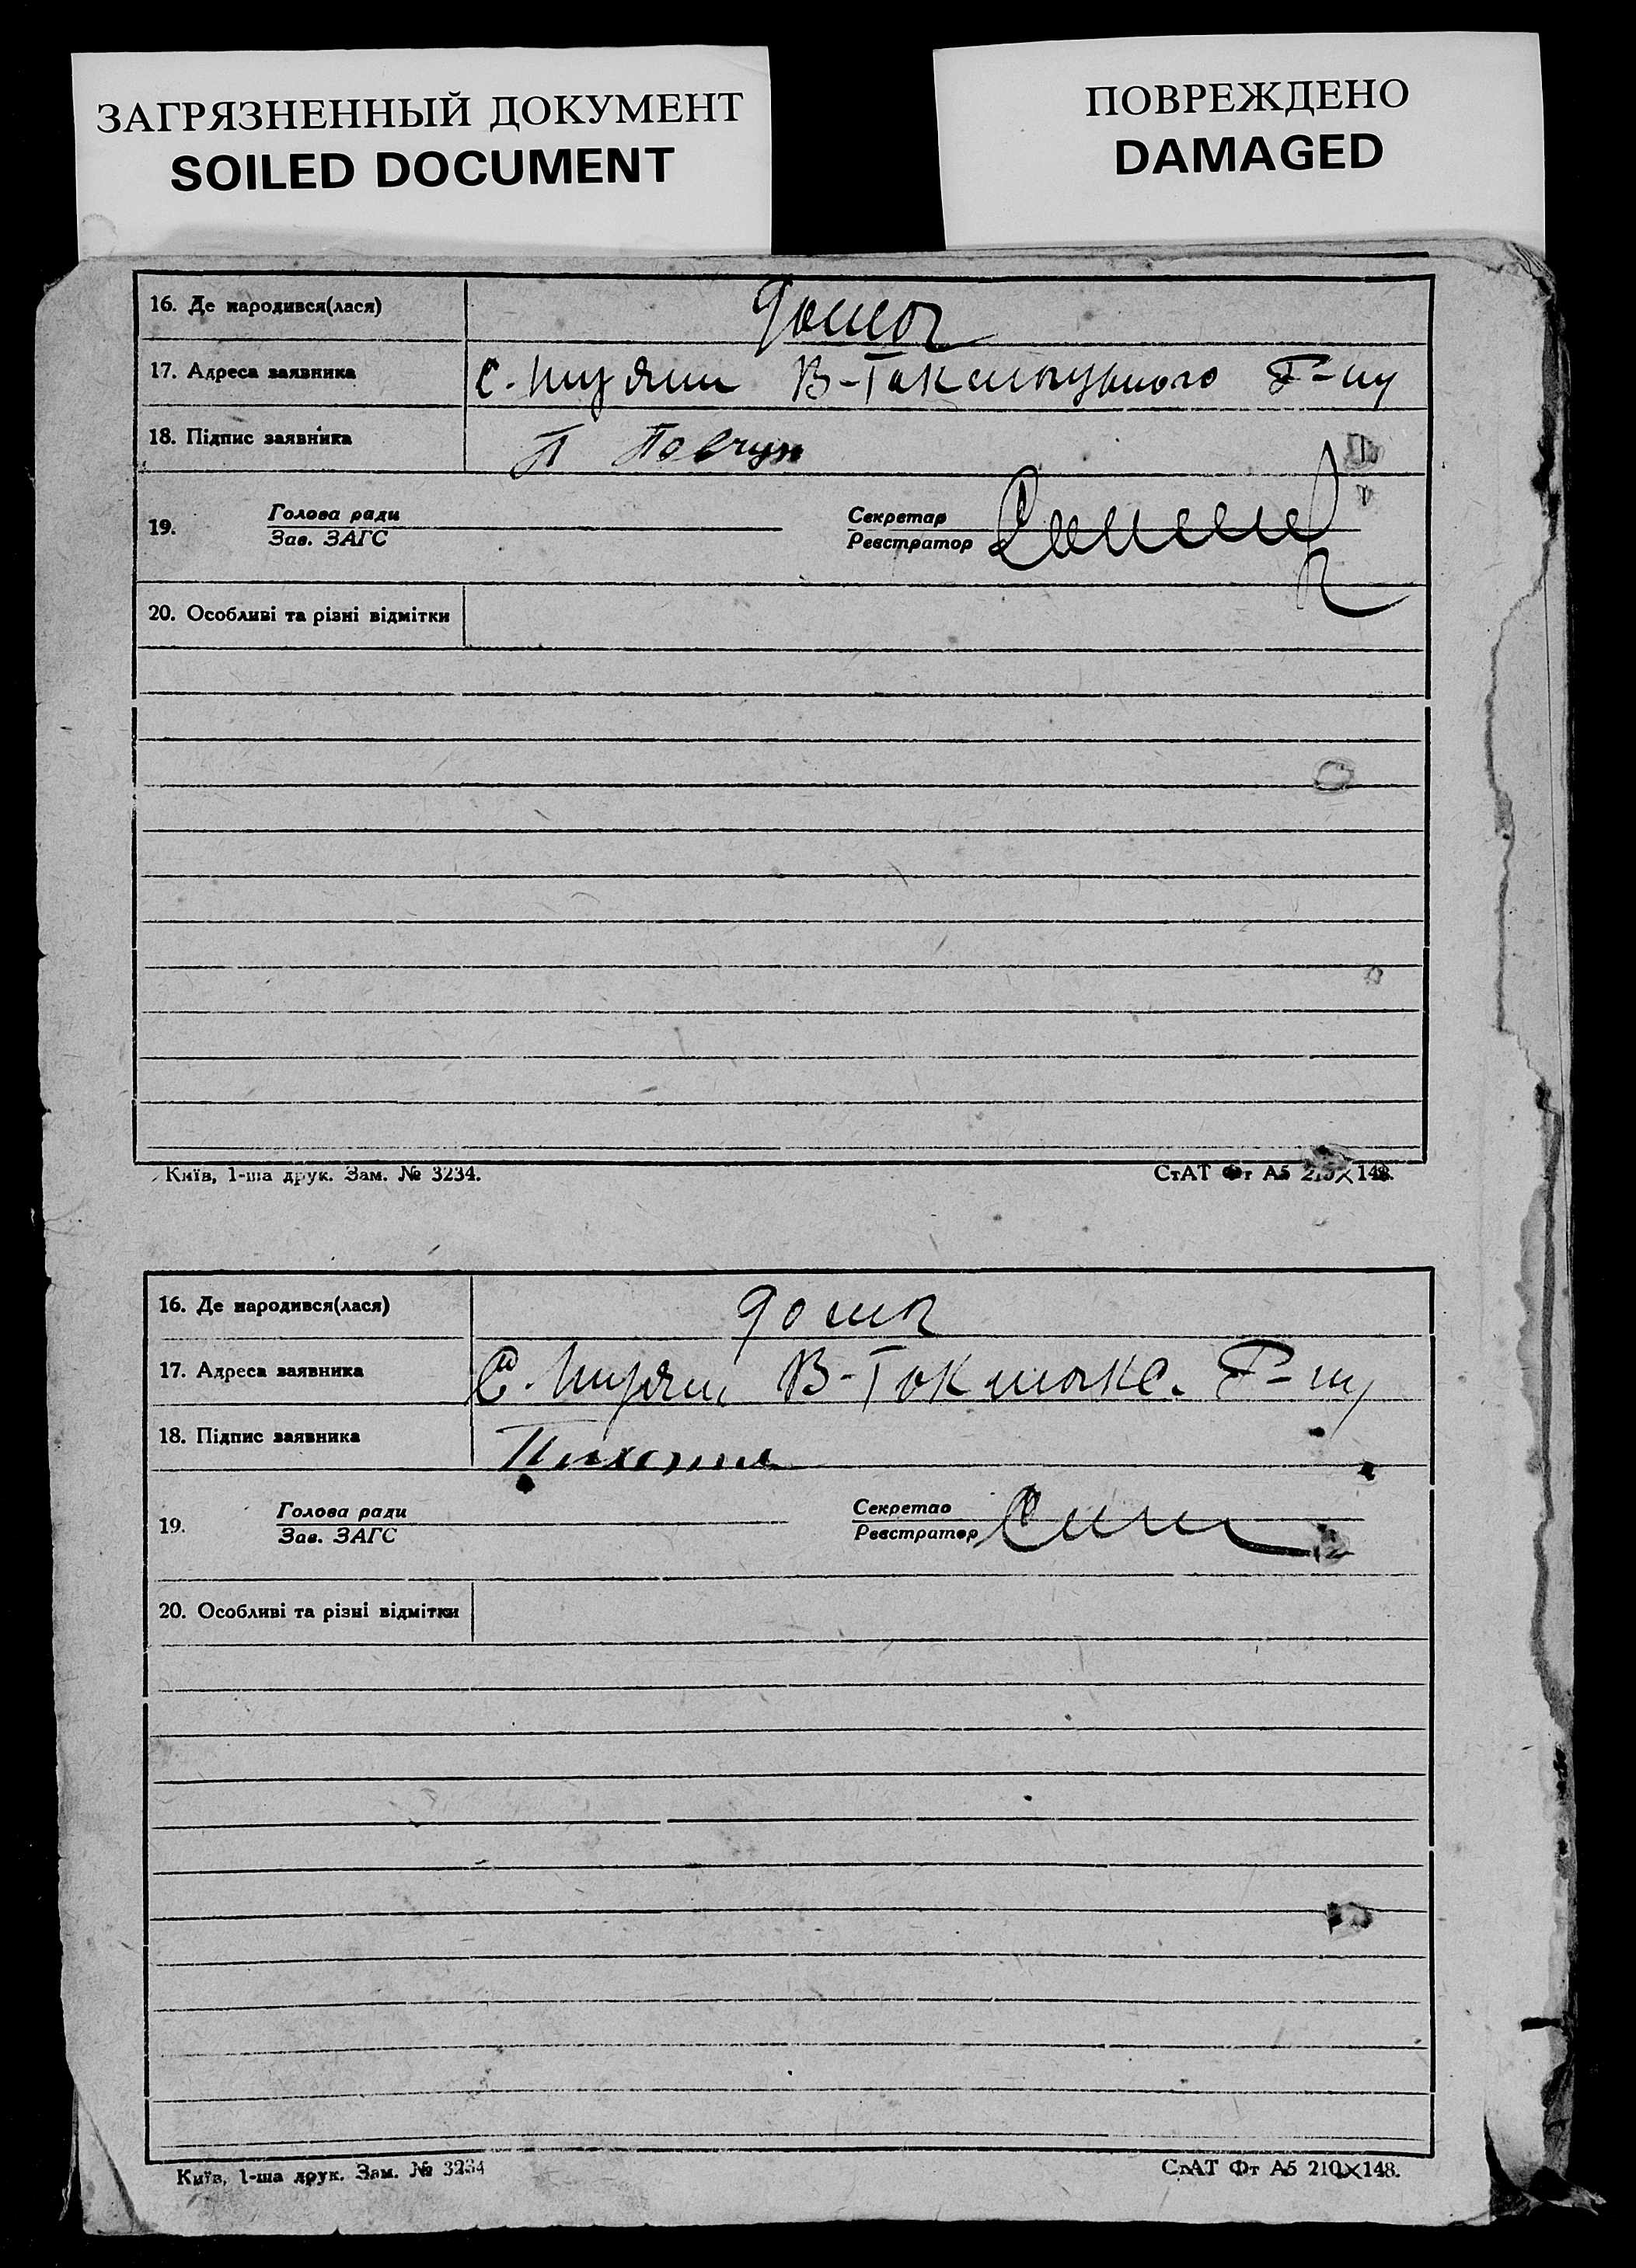 ЗАГРЯЗНЕННЫЙ ДОКУМЕНТ
SOILED DOCUMENT
ПОВРЕЖДЕНО
DAMAGED
16. Де народився(лася) дома
17. Адреса заявника с. В-Токмацького Р-ну
18. Підпис заявника П
19. Голова ради
Зав. ЗАГС
Секретар
Реєстратор
20. Особливі та різні відмітки
Київ, 1-ша друк. Зам. № 3234.
СтАТ Фт А5 210×148.
16. Де народився(лася) дома
17. Адреса заявника С. В-Токмакс. Р-ну
18. Підпис заявника
19. Голова ради
Зав. ЗАГС
Секретар
Реєстратор
20. Особливі та різні відмітки
Київ, 1-ша друк. Зам. № 3234
СтАТ Фт А5 210×148.